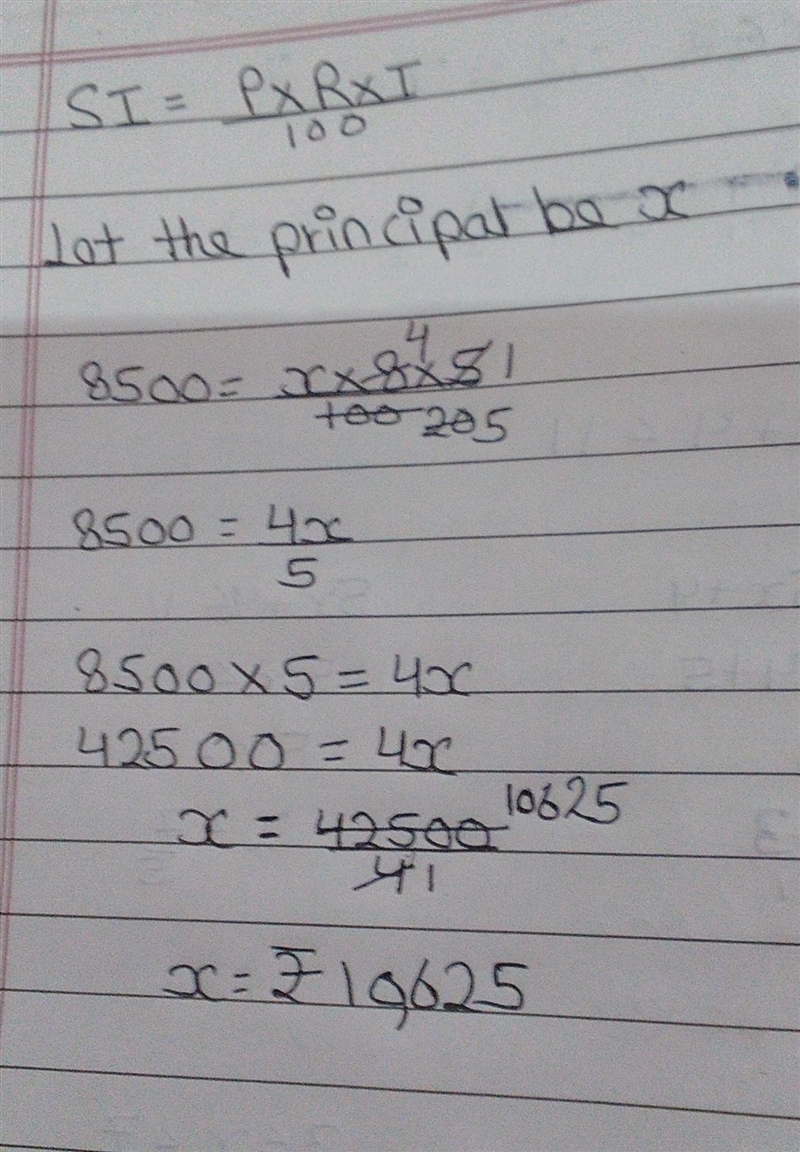 SI = P×R×T/100
Let the principal be x
8500 = x×8 4×5 1/100 20 5
8500 = 4x/5
8500×5 = 4x
42500 = 4x
x = 42500 10625/4 1
x = ₹10,625